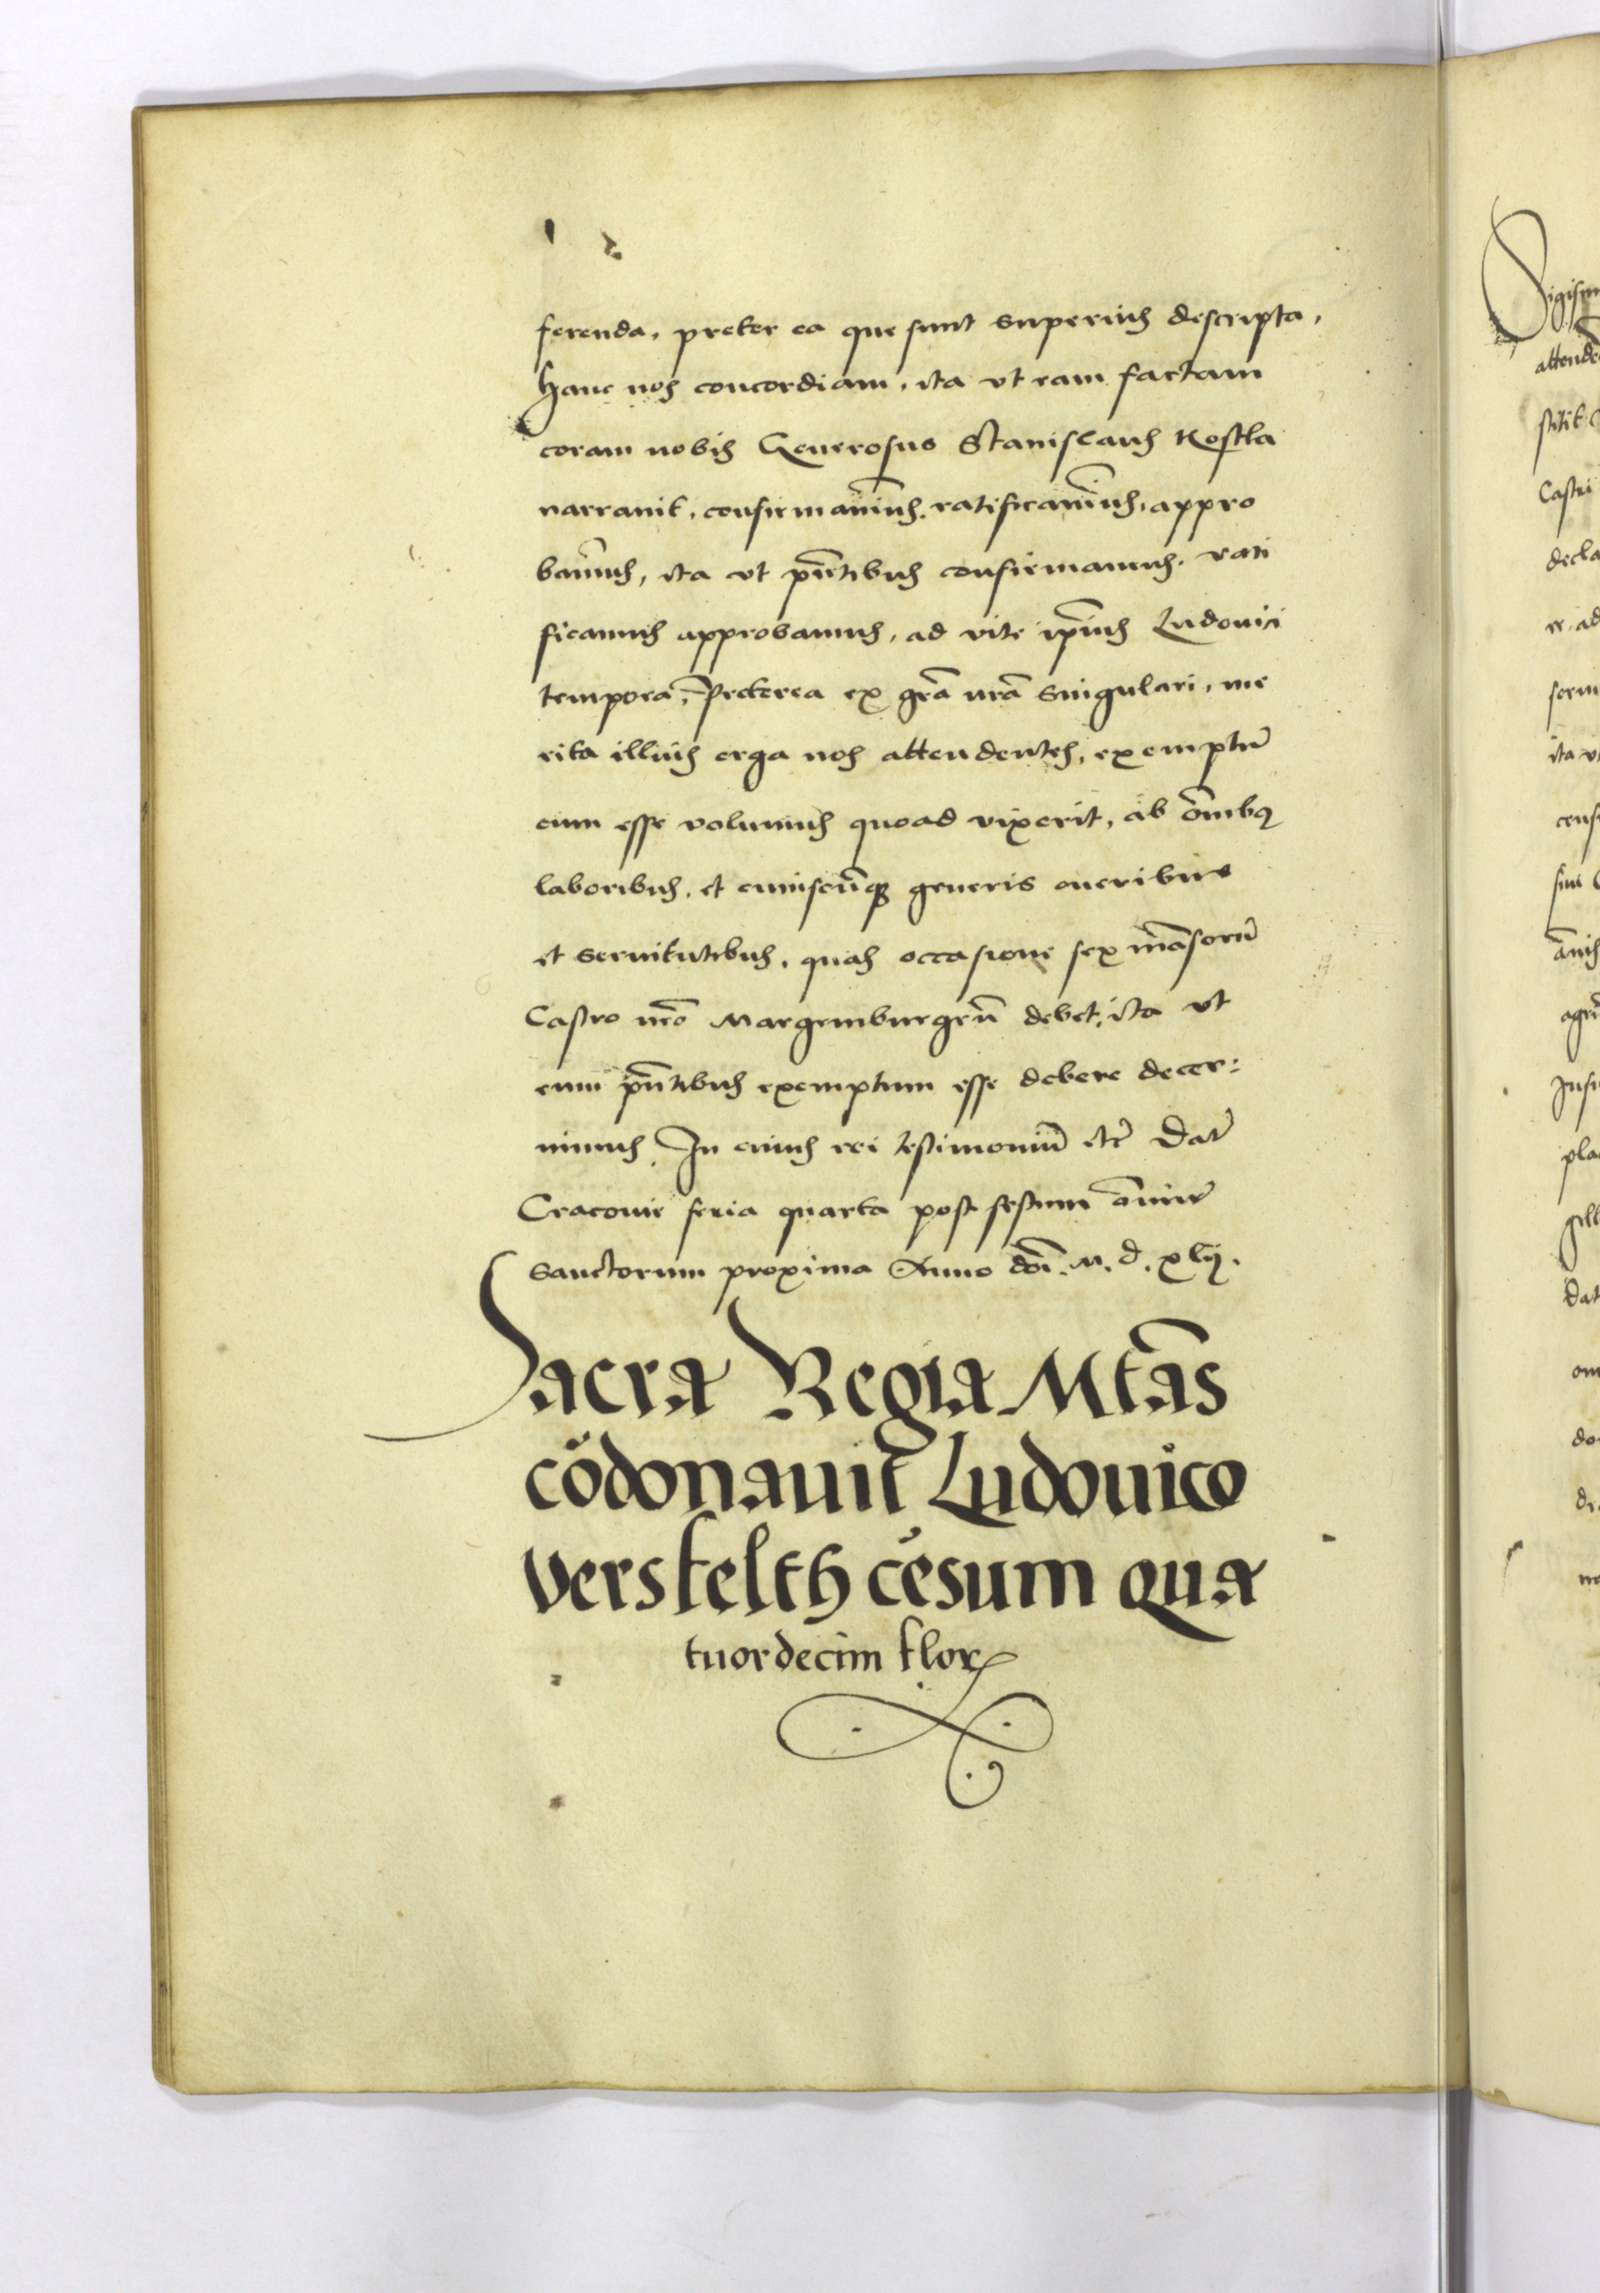 ferenda, preter ea que sunt superius descripta,
hanc nos concordiam, ita ut eam factam
coram nobis Generosus Stanislaus Kostka
narravit, confirmavimus, ratificavimus, appro
bavimus, ita ut pñtibus confirmamus, rati
ficamus approbamus, ad vite ipsius Ludovici
tempora, Preterea ex grã nrã singulari, me
rita illius erga nos attendentes, exemptũ
eum esse volumus quoad vixerit, ab õmibus
laboribus, et cuiuscũque generis oneribus
et servitutibus, quas occasione sex mãsorũ
Castro nrõ Margemburgeñ debet, ita ut
eum pñtibus exemptum esse debere decer:
nimus. In cuius rei testimoniũ etc Dat
Cracovie feria quarta post festum õmiũ
Sanctorum proxima Anno dñi. M. d. xlij.
Sacra Regia Mtãs
cõdonauit Ludouico
Versfelth cẽsum qua
tuordecim flor
Sigism
attende
stitit
Castri
decla
ita ut
pla
dat